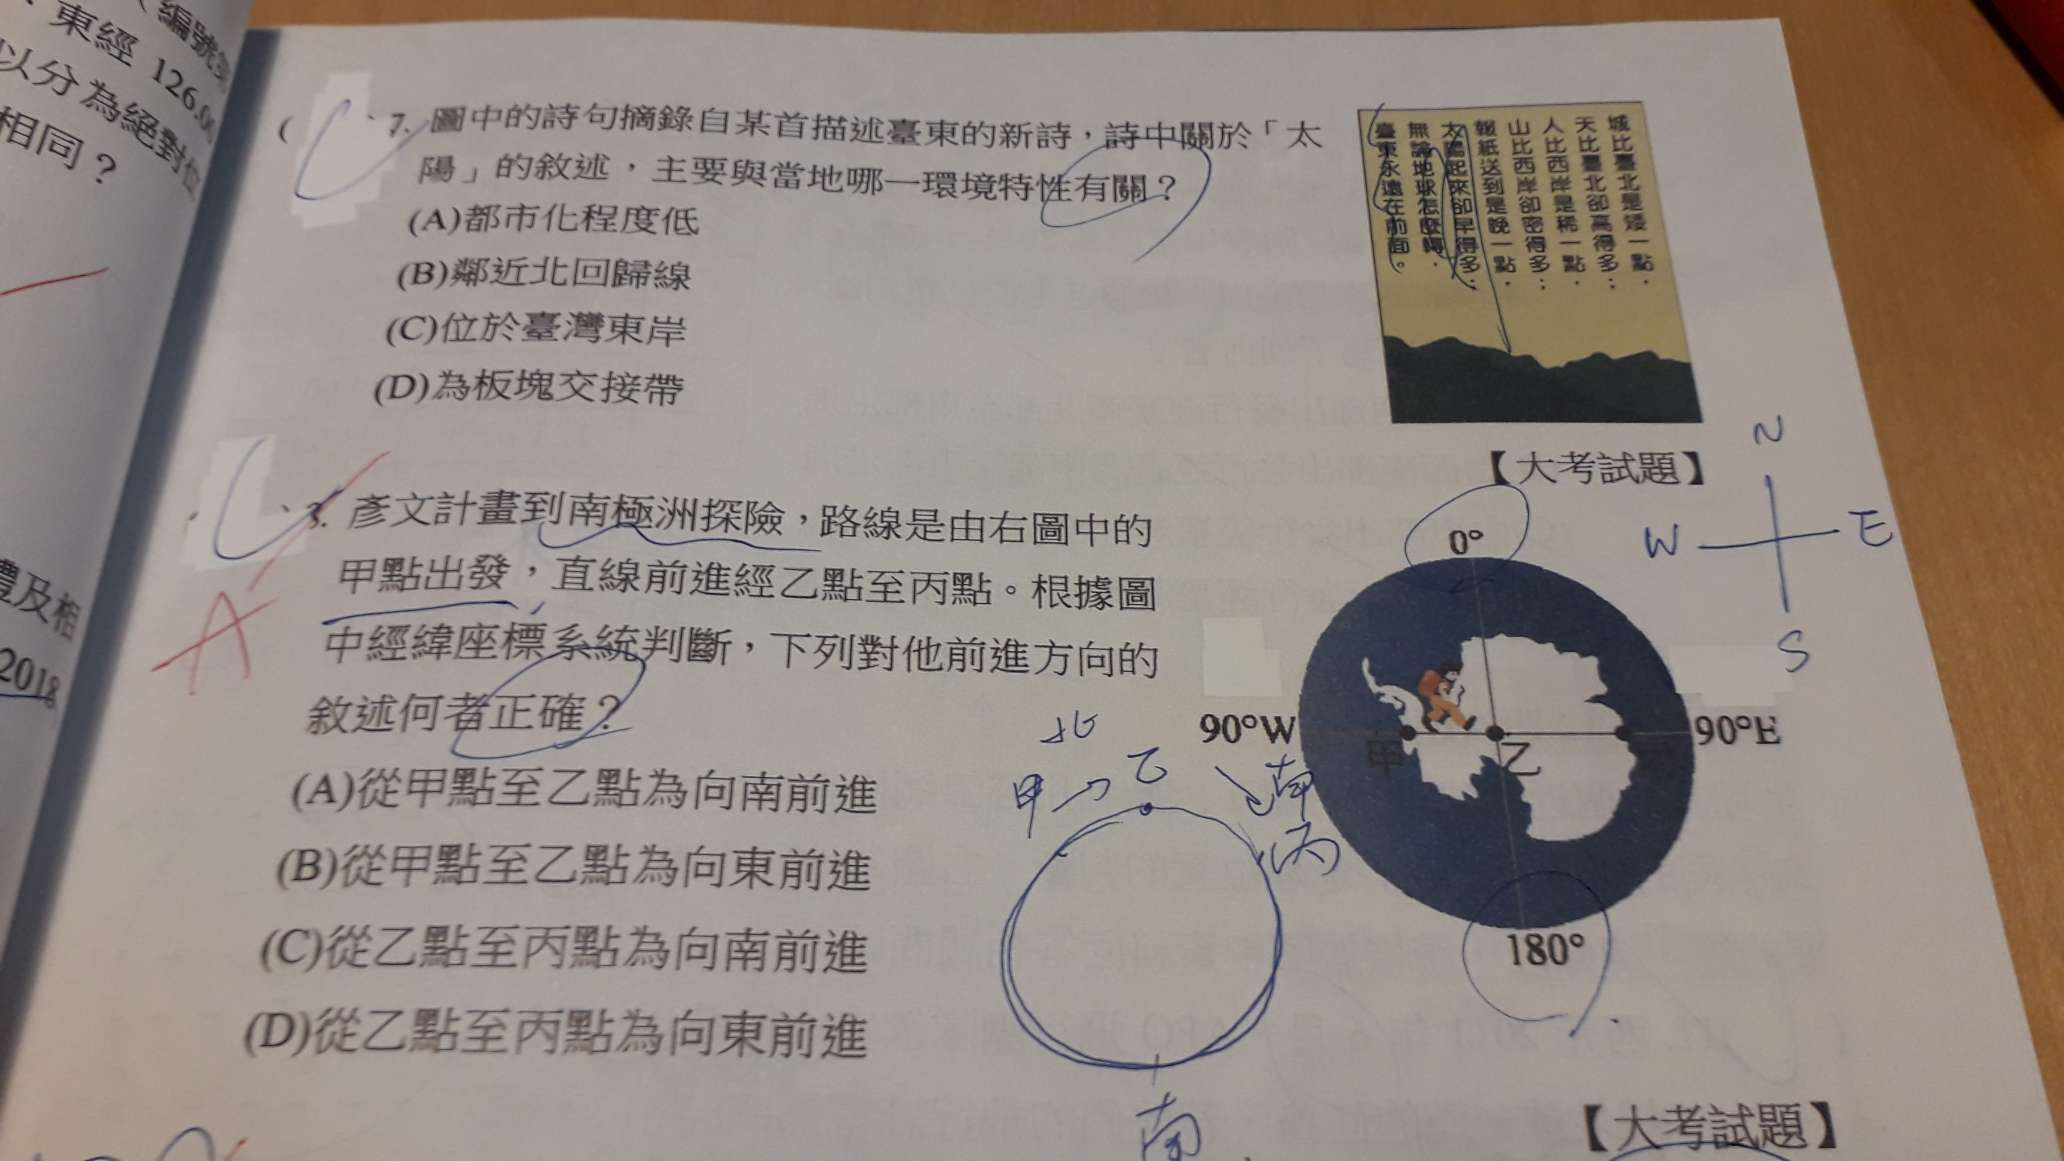 (編號第
東經 126.0
以分為絕對位
相同？
豊及相
2018
( 7. 圖中的詩句摘錄自某首描述臺東的新詩，詩中關於「太
陽」的敘述，主要與當地哪一環境特性有關？
(A)都市化程度低
(B)鄰近北回歸線
(C)位於臺灣東岸
(D)為板塊交接帶
城比臺北是矮一點，
天比臺北卻高得多；
人比西岸是稀一點，
山比西岸卻密得多；
報紙送到是晚一點，
太陽起來卻早得多；
無論地球怎麼轉，
臺東永遠在前面。
【大考試題】
C
A
、8. 彥文計畫到南極洲探險，路線是由右圖中的
甲點出發，直線前進經乙點至丙點。根據圖
中經緯座標系統判斷，下列對他前進方向的
敘述何者正確？
(A)從甲點至乙點為向南前進
(B)從甲點至乙點為向東前進
(C)從乙點至丙點為向南前進
(D)從乙點至丙點為向東前進
N
W E
S
0°
90°W 90°E
甲 乙
180°
北
甲 乙 南
丙
南
【大考試題】